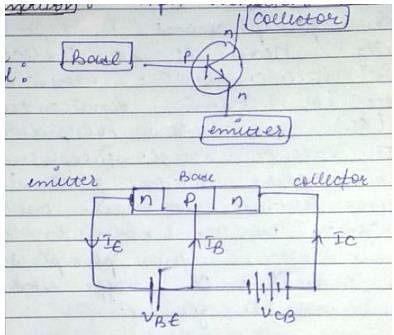 Collector
n
Base
P
n
emitter
emitter Base collector
n P n
IE IB IC
VBE VCB